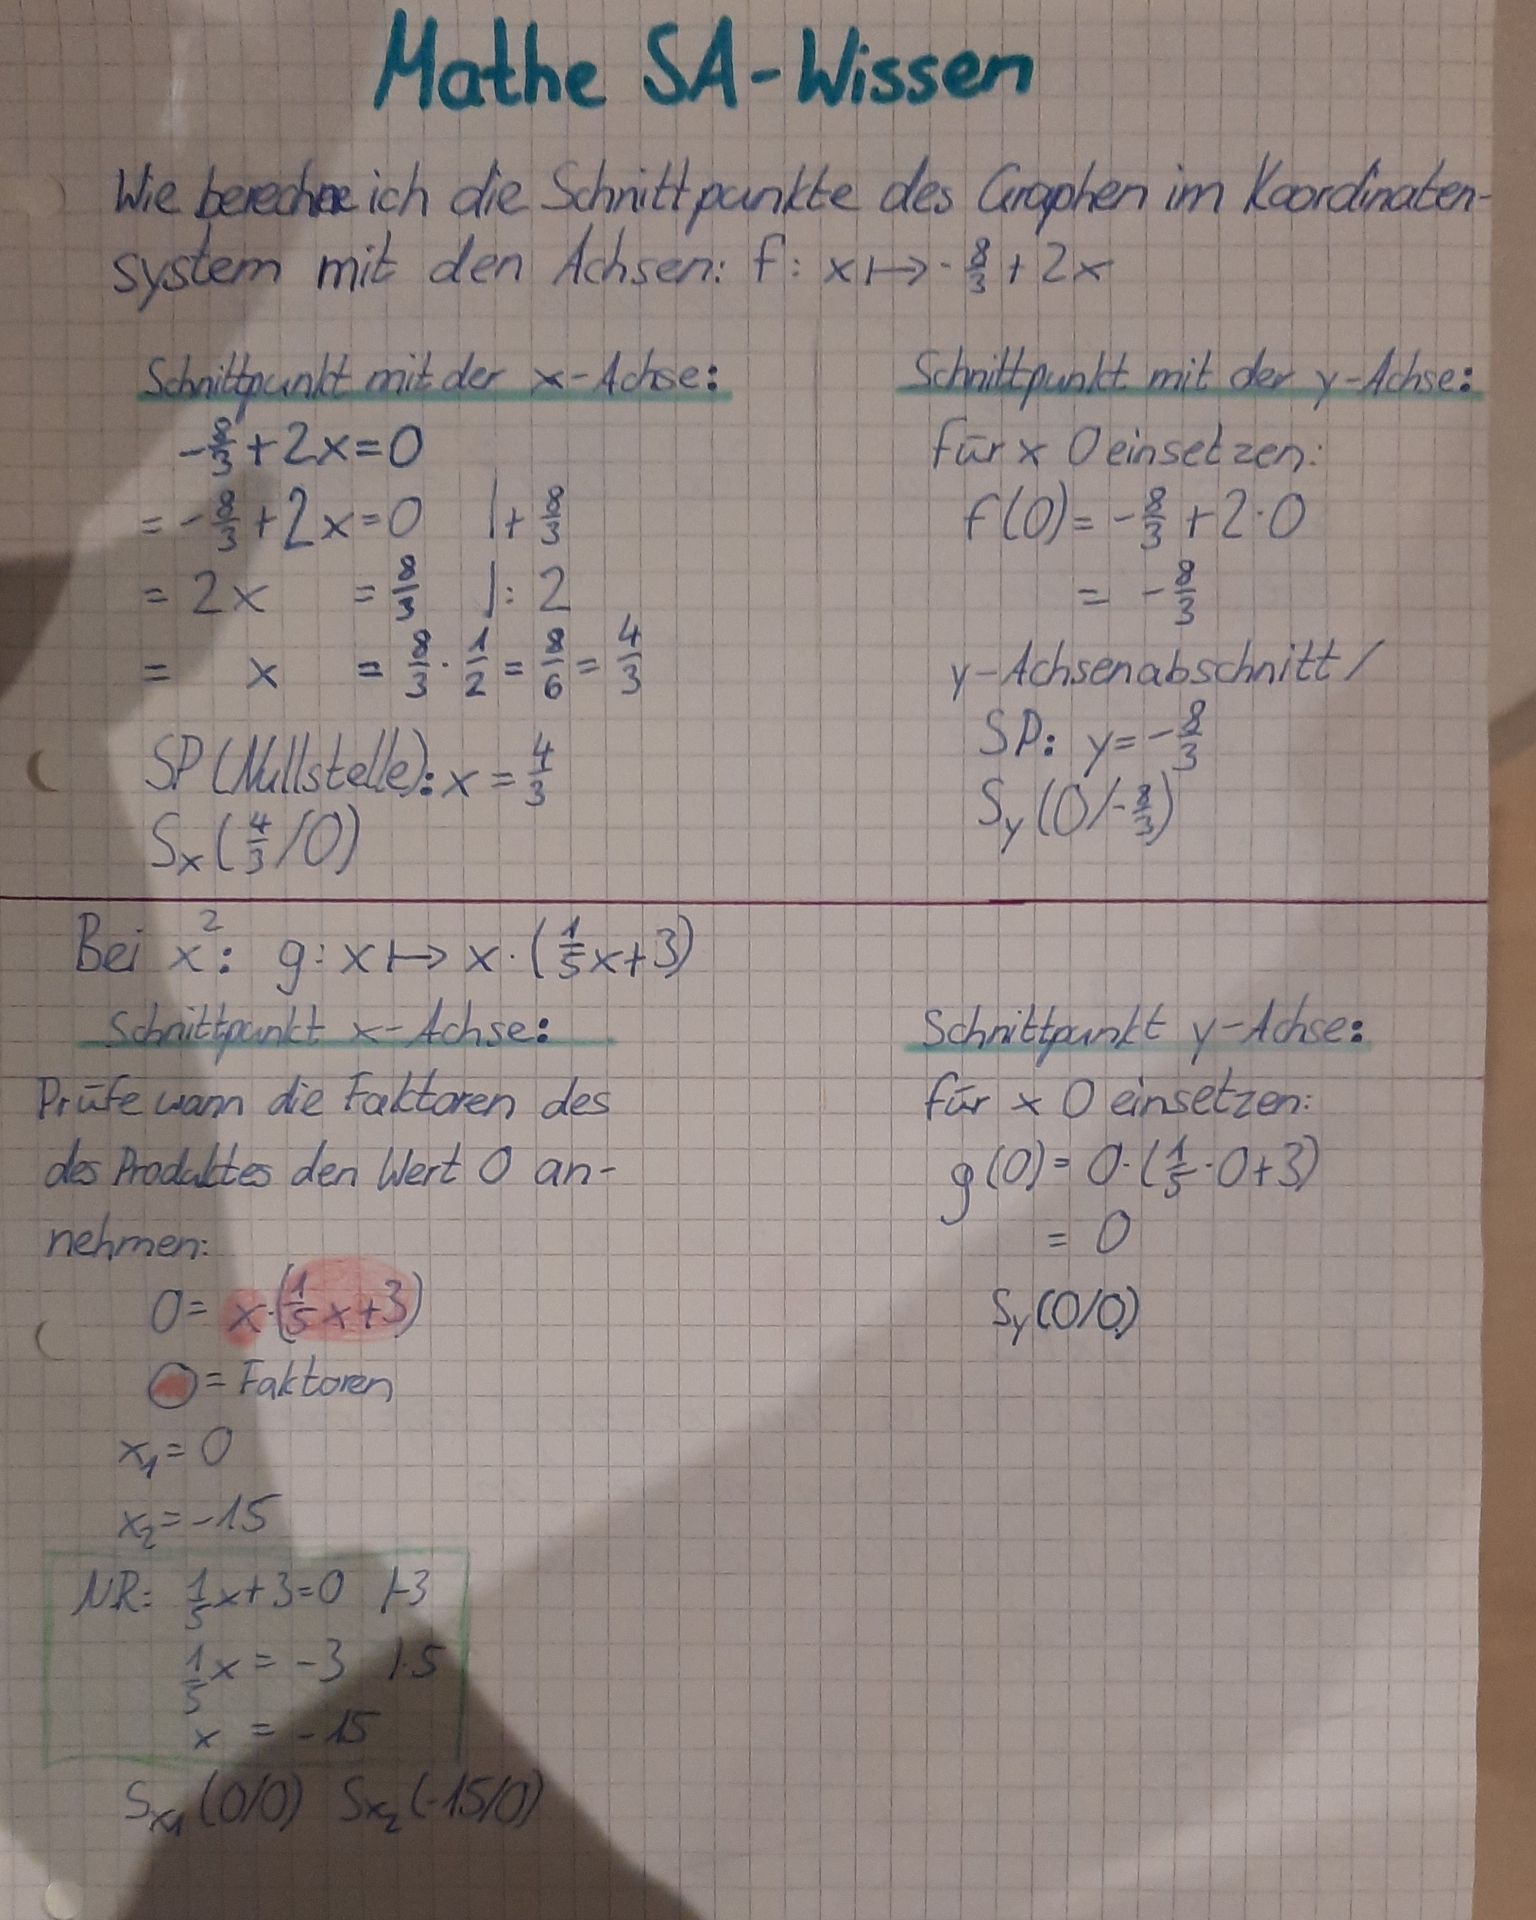 Mathe SA-Wissen
Wie berechne ich die Schnittpunkte des Graphen im Koordinaten-
system mit den Achsen: f: x ↦ -8/3 + 2x
Schnittpunkt mit der x-Achse:
-8/3 + 2x = 0
= -8/3 + 2x = 0 | + 8/3
= 2x = 8/3 | : 2
= x = 8/3 · 1/2 = 8/6 = 4/3
SP (Nullstelle): x = 4/3
Sx (4/3 / 0)
Schnittpunkt mit der y-Achse:
für x 0 einsetzen:
f(0) = -8/3 + 2·0
= -8/3
y-Achsenabschnitt/
SP: y = -8/3
Sy (0/-8/3)
Bei x²: g: x ↦ x · (1/5x+3)
Schnittpunkt x-Achse:
Prüfe wann die Faktoren des
des Produktes den Wert 0 an-
nehmen:
0 = x·(1/5x+3)
= Faktoren
x₁ = 0
x₂ = -15
NR: 1/5x + 3 = 0 |-3
1/5x = -3 |·5
x = -15
Sx₁ (0/0) Sx₂ (-15/0)
Schnittpunkt y-Achse:
für x 0 einsetzen:
g(0) = 0·(1/5·0+3)
= 0
Sy (0/0)